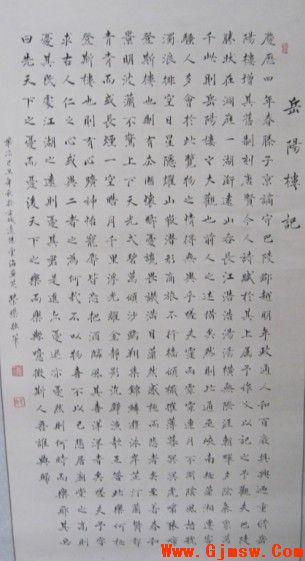 岳陽樓記
慶歷四年春滕子京謫守巴陵郡越明年政通人和百廢具興迺重修岳
陽樓增其舊制刻唐賢今人詩賦於其上屬予作文以記之予觀夫巴陵
勝狀在洞庭一湖銜遠山吞長江浩浩湯湯橫無際涯朝暉夕陰氣象萬
千此則岳陽樓之大觀也前人之述備矣然則北通巫峽南極瀟湘遷客
騷人多會於此覽物之情得無異乎若夫霪雨霏霏連月不開陰風怒號
濁浪排空日星隱耀山岳潛形商旅不行檣傾楫摧薄暮冥冥虎嘯猿啼
登斯樓也則有去國懷鄉憂讒畏譏滿目蕭然感極而悲者矣至若春和
景明波瀾不驚上下天光一碧萬頃沙鷗翔集錦鱗游泳岸芷汀蘭郁郁
青青而或長煙一空皓月千里浮光耀金靜影沉璧漁歌互答此樂何極
登斯樓也則有心曠神怡寵辱皆忘把酒臨風其喜洋洋者矣嗟夫予嘗
求古人仁之心或異二者之為何哉不以物喜不以己悲居廟堂之高則
憂其民處江湖之遠則憂其君是進亦憂退亦憂然則何時而樂耶其必
曰先天下之憂而憂後天下之樂而樂歟噫微斯人吾誰與歸
Www.Gjmsw.Com